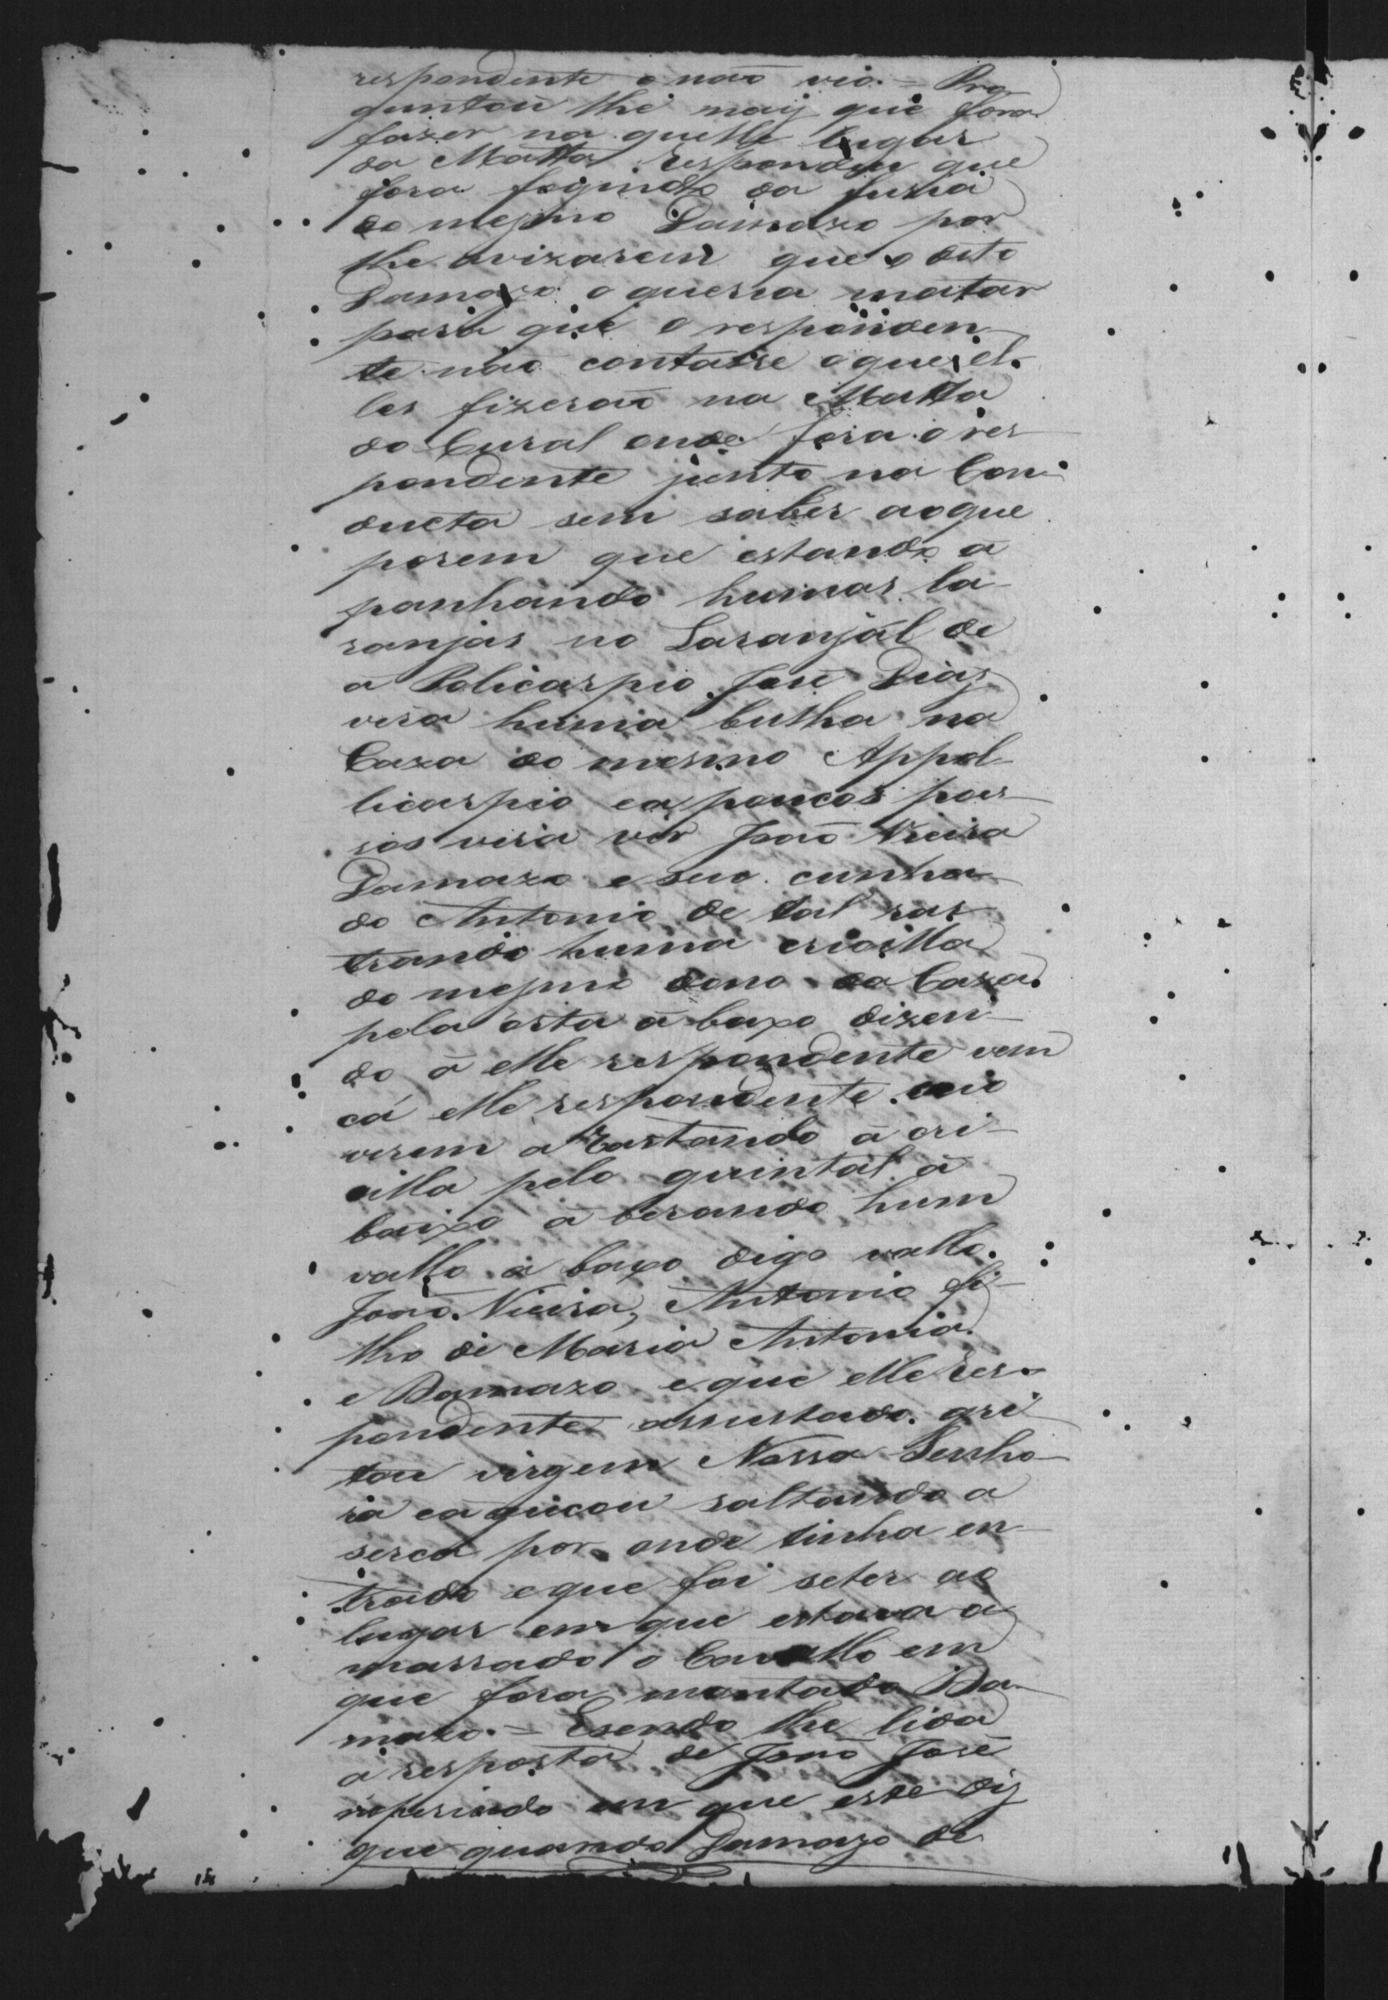 respondente o não vio. = Pre
guntou lhe mais que fora
fazer na quelle lugar
da Matta respondeu que
fora fogindo da furia
do mesmo Damazo por
lhe avizarem que o dito
Damazo o queria matar
para que o responden
te não contasse o que el
les fizerão na Matta
do Curral onde fora o res
pondente junto na Con
ducta sem saber aoque
porem que estando a
panhando humas la
ranjas no Laranjal de
a Policarpio José Dias
vira huma bulha na
Caza do mesmo Appol
licarpio e a poucos pas
sos vira vir João Vieira
Damazo e seu cunha
do Antonio de tal ras
trando huma crioilla
do mesmo dono da Caza
pela orta a baxo dizen
do a elle respondente vem
cá elle respondente
virem a rastando a cri
oilla pelo quintal a
baixo a berando hum
vallo a baxo digo vallo.
João Vieira, Antonio fi
lho de Maria Antonia
e Damazo e que elle res
pondente assustado gri
tou virgem Nossa Senho
ra e a saltando a
serca por onde tinha en
trado e que foi seter ao
lugar em que estava a
marrado o Cavallo em
que fora montado Da
mazo. = Esendo lhe lida
a resposta de João José
referindo em que este diz
que quando Damazo de